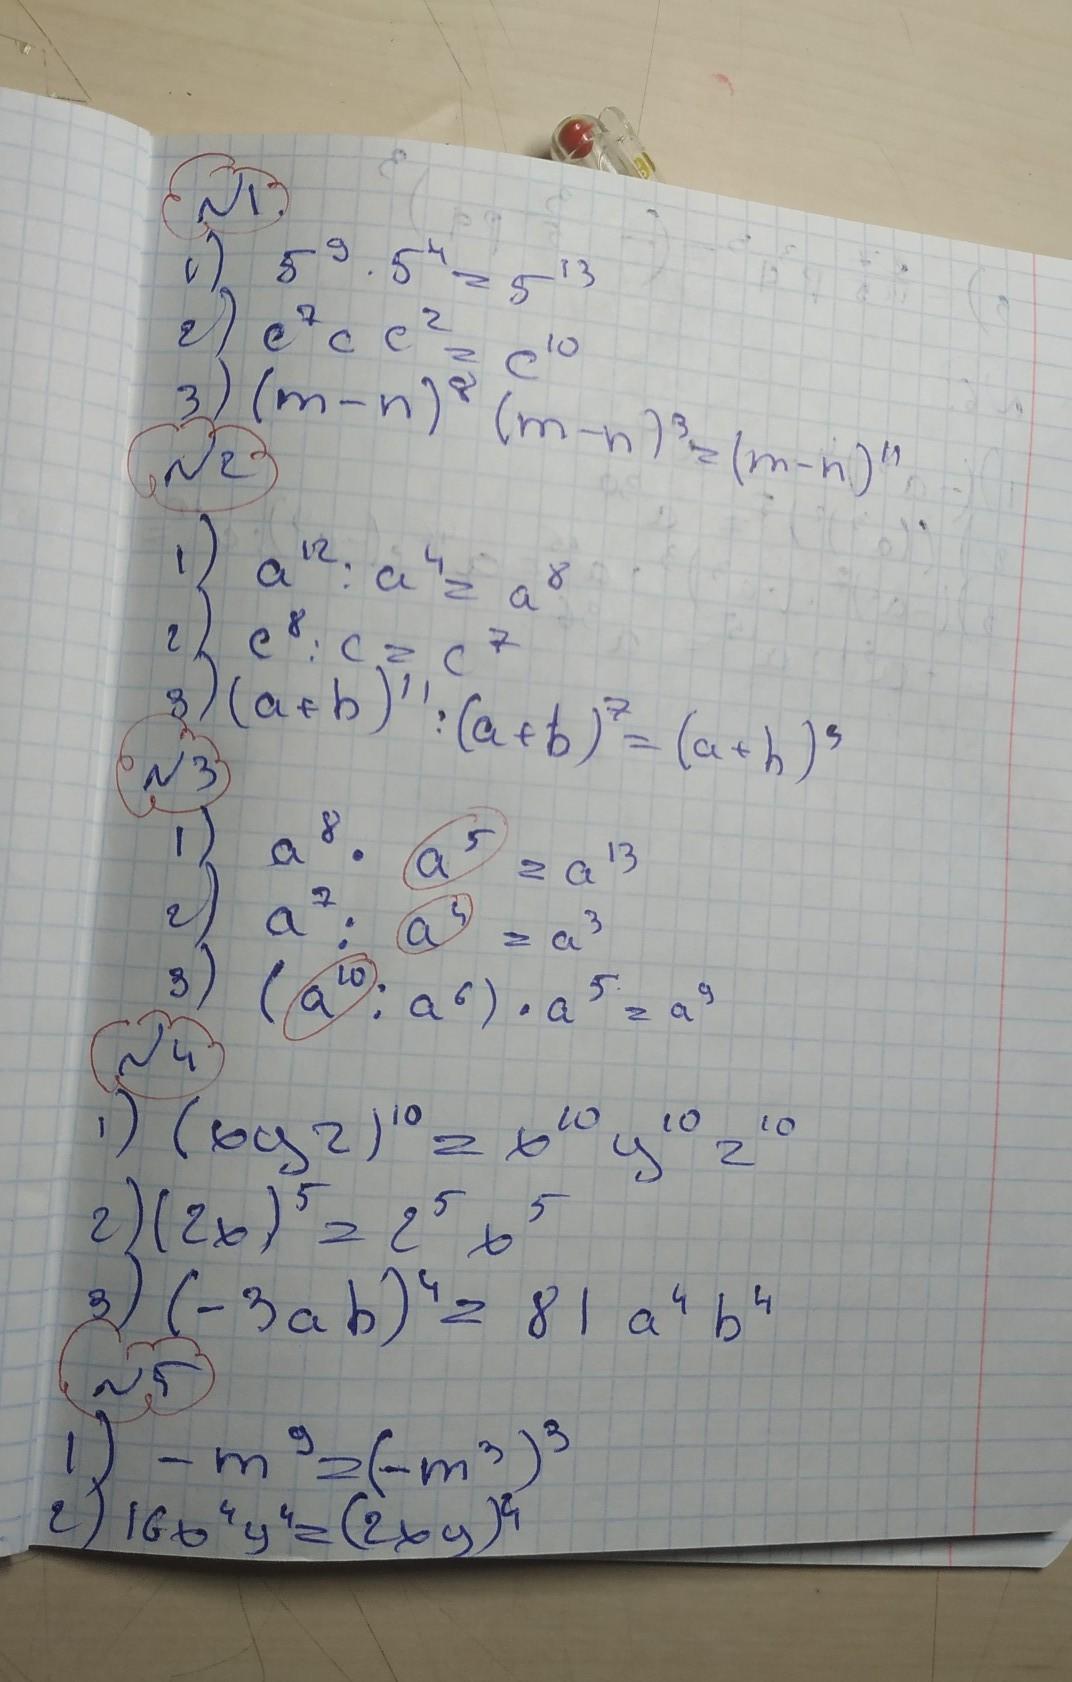 №1.
1) 5⁹ · 5⁴ = 5¹³
2) c⁷ c c² = c¹⁰
3) (m-n)⁸ (m-n)³ = (m-n)¹¹
№2
1) a¹² : a⁴ = a⁸
2) c⁸ : c = c⁷
3) (a+b)¹¹ : (a+b)⁷ = (a+b)⁹
№3
1) a⁸ · a⁵ = a¹³
2) a⁷ : a⁴ = a³
3) (a¹⁰ : a⁶) · a⁵ = a⁹
№4
1) (xyz)¹⁰ = x¹⁰ y¹⁰ z¹⁰
2) (2x)⁵ = 2⁵ x⁵
3) (-3ab)⁴ = 81 a⁴ b⁴
№5
1) -m⁹ = (-m³)³
2) 16x⁴y⁴ = (2xy)⁴